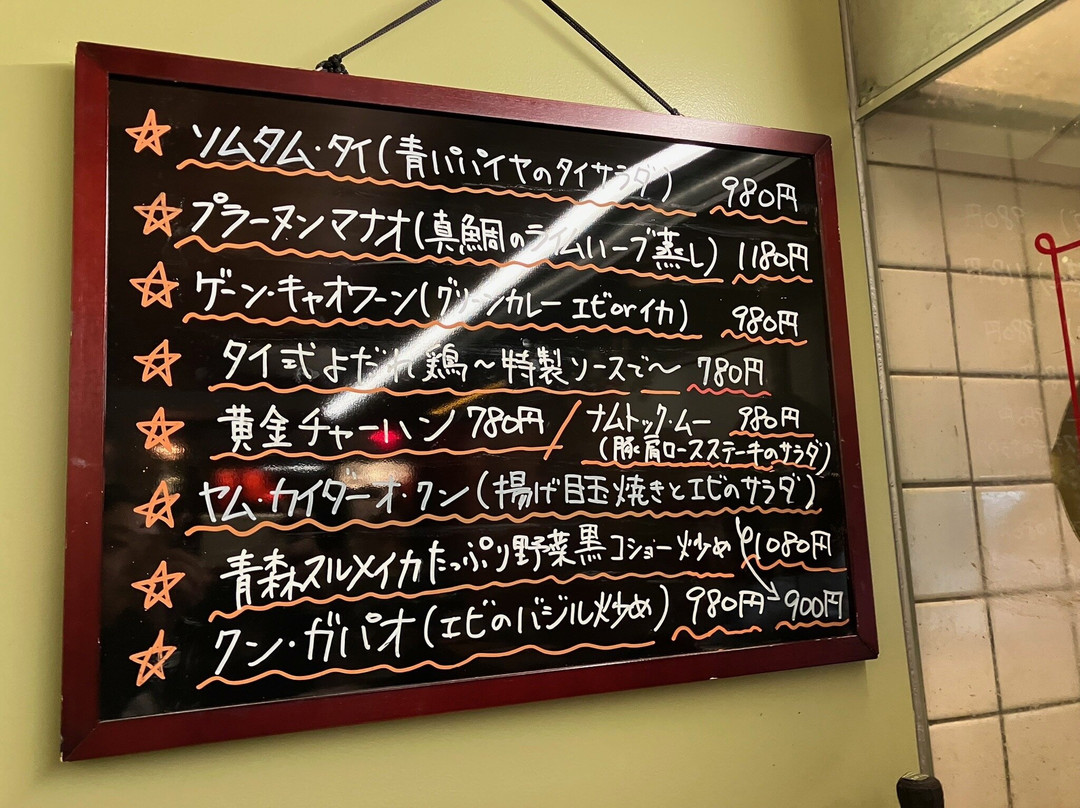 ☆ ソムタム・タイ(青パパイヤのタイサラダ) 980円
☆ プラーヌンマナオ(真鯛のライムハーブ蒸し) 1180円
☆ ゲーン・キャオワーン(グリーンカレー エビorイカ) 980円
☆ タイ式よだれ鶏〜特製ソースで〜 780円
☆ 黄金チャーハン 780円 / ナムトック・ムー 980円
(豚肩ロースステーキのサラダ)
☆ ヤム・カイダーオ・クン(揚げ目玉焼きとエビのサラダ)
900円
☆ 青森スルメイカたっぷり野菜黒コショー炒め 1080円
☆ クン・ガパオ(エビのバジル炒め) 980円